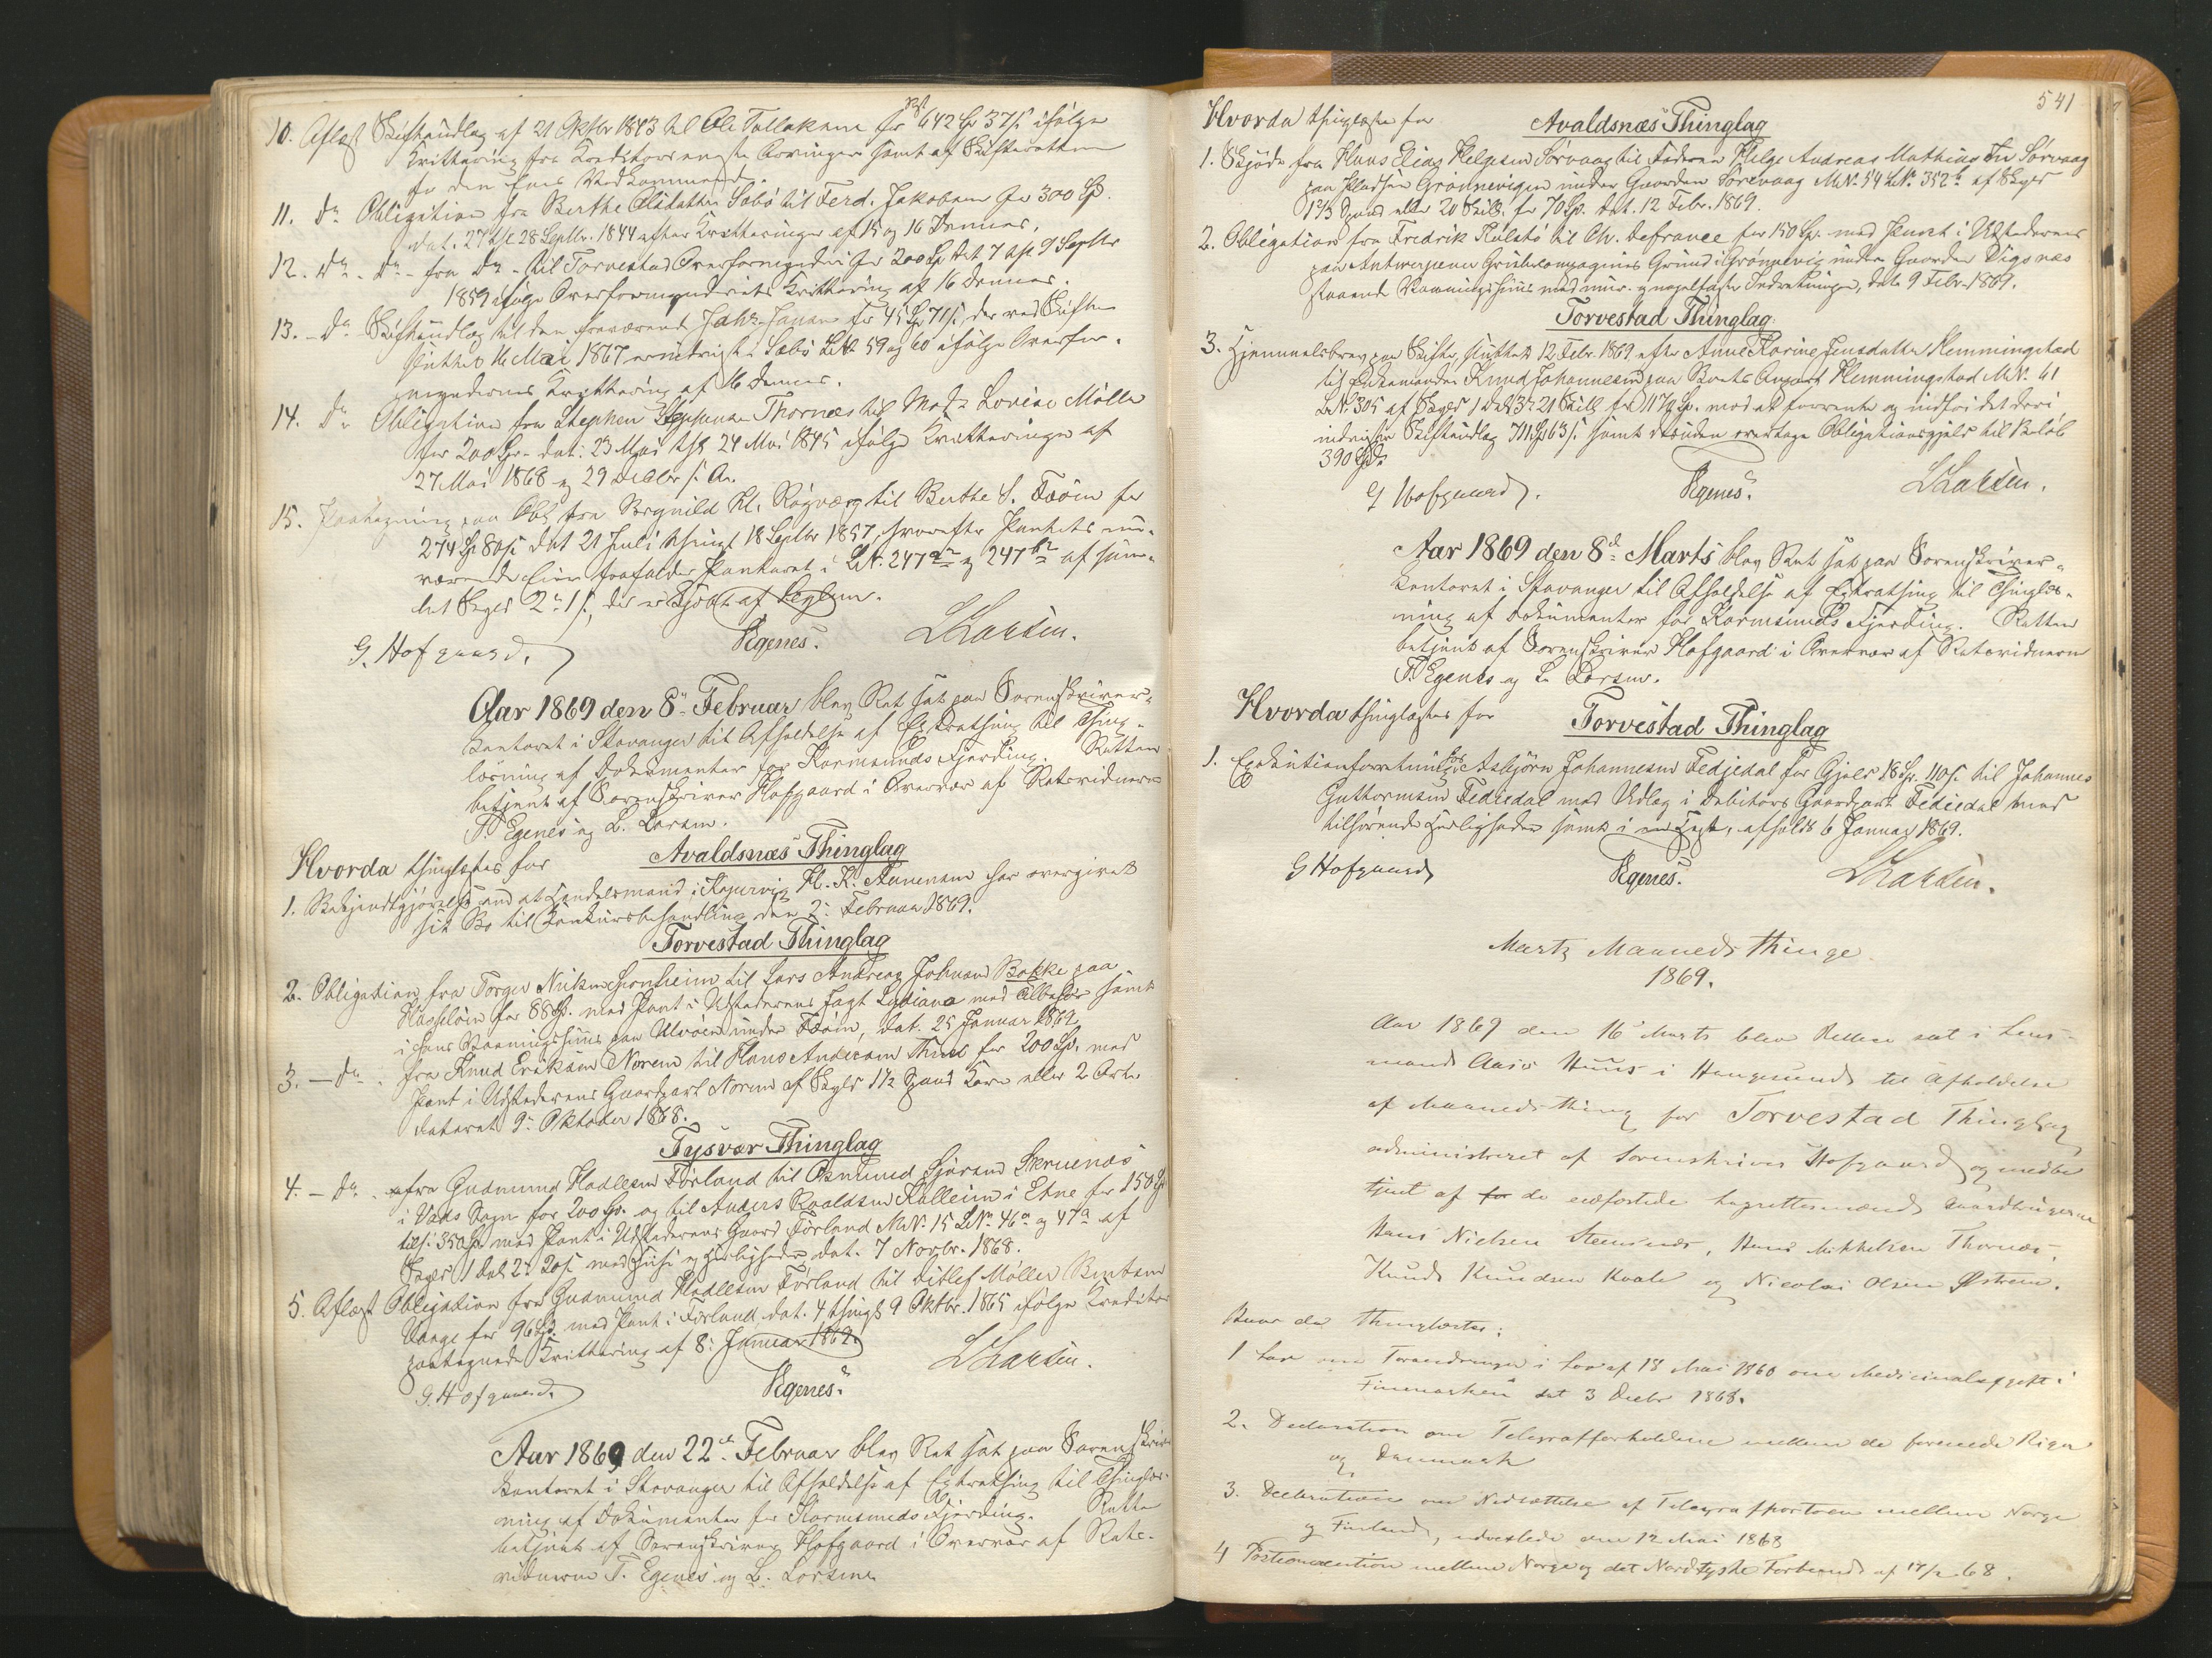 10. Aflæst Skifteudlæg af 21 Oktbr 1843 til Ole Tollaksen for Rst. 642 Sp 37 s ifølge
Kvittering fra Kreditors eneste Arvinger samt af Skifteretten
for den ene Vedkommende.
11. Do Obligation fra Berthe Olsdatter Sæbö til Ferd. Jakobsen for 300 Sp.
dat. 27 thl 28 Septbr. 1844 efter Kvitteringer af 15 og 16 Dennes.
12. Do - Do - fra Do - til Torvestad Overformynderi for 200 Sp dat 7 thl 9 Septbr
1859 ifølge Overformynderiets Kvittering af 16 Dennes.
13. - Do Skifteudlæg til den fraværende Johs. Jansen for 45 Sp 71 s, der ved Skifte
sluttet 16 Mai 1867 er indrigtet Sæbö LNo 59 og 60 ifølge Overfor-
mynderiets Kvittering af 16 Dennes.
14. Do Obligation fra Stephen Stephensen Thornæs til Mad. Lovise Mölle
for 200 Sp - dat: 23 Mai thl 24 Mai 1845 ifølge Kvitteringer af
27 Mai 1868 og 29 Decbr s. A.
15. Paategning paa Obl. fra Bergnild Kl. Rögvær til Berthe S. Föön for
274 Sp 80 s dat 21 Juli thingl 18 Septbr 1857, hvorefter Pantets nu-
værende Eier frafalder Panteret i LNo. 247 a og 247 b af sam-
let Skyld 2 1 s, der er kjøbt af
G. Hofgaard. Egenes. L Larsen.
Aar 1869 den 8de Februar blev Ret sat paa Sorenskriver-
kontoret i Stavanger til Afholdelse af Extrathing til Thing-
læsning af Dokumenter for Karmsunds Fjerding. Retten
betjent af Sorenskriver Hofgaard i Overvær af Retsvidnerne
T. Egenes og L. Larsen.
Hvorda thinglæstes for Avaldsnæs Thinglag
1. Bekjendtgjørelse om at Handelsmand i Kopervig H. K. Amnensen har overgivet
sit Bo til Konkursbehandling den 2. Februar 1869.
Torvestad Thinglag
2. Obligation fra Torger Nilsen Sponheim til Lars Andreas Johnsen Bakke paa
Hasselöen for 88 Sp. med Pant i Udstederens Jagt Lydiana med Tilbehør samt
i hans Vaaningshuus paa Ulvöen under Föön, dat. 25 Januar 1869
3. - Do. fra Knud Eriksen Norem til Hans Andersen Thue for 200 Sp. med
Pant i Udstederens Gaardpart Norem af Skyld 1 1/2 Spand Korn eller 2 Ort.
dateret 9. Oktober 1868.
Tysvær Thinglag
4. - Do. fra Gudmund Hadlesen Förland til Osmund Sjursen Skruenæs
i Vads Sogn for 200 Sp. og til Anders Roaldsen Kalleim i Etne for 150 Sp
tils. 350 Sp. med Pant i Udstederens Gaard Förland MNo. 15 LNo. 46a og 47a af
Skyld 1 Dal 2 20 s med Huse og Herligheder dat. 7 Novbr. 1868.
5. Aflæst Obligation fra Gudmund Hadlesen Förland til Ditlef Möller Bentsen
Vaage for 96 Sp. med Pant i Förland, dat. 4, thingl 9 Oktbr. 1865 ifølge Kreditors
paategnede Kvittering af 8. Januar 1869.
G. Hofgaard. Egenes. L Larsen.
Aar 1869 den 22de Februar blev Ret sat paa Sorenskriver
kontoret i Stavanger til Afholdelse af Extrathing til Thinglæs-
ning af Dokumenter for Karmsunds Fjerding. Retten
betjent af Sorenskriver Hofgaard i Overvær af Rets-
vidnerne T. Egenes og L. Larsen
541
Hvorda thinglæstes for Avaldsnæs Thinglag
1. Skjöde fra Hans Elias Helgesen Sörvaag til Faderen Helge Andreas Mathias Sörvaag
paa Pladsen Grönnevigen under Gaarden Sörevaag MNo. 54 LNo. 352 b af Skyld
1 2/3 Spand eller 20 Skill. for 70 Sp. dat. 12 Febr. 1869.
2. Obligation fra Fredrik Kölstö til Ch. Defrance for 150 Sp. med Pant i Udstederens
paa Antwerpener Grubecompagnies Grund i Grönnevig under Gaarden Vigsnæs
staaende Vaaningshuus med mur- og nagelfaste Indretninger, dat. 9 Febr. 1869.
Torvestad Thinglag
3. Hjemmelsbrev paa Skifte, sluttet 12 Febr. 1869 efter Anne Karine Jensdatter Hemmingstad
til Enkemanden Knud Johannesen paa Boets Anpart Hemmingstad MNo. 41
LNo. 305 af Skyld 1 Dal 3 21 Skill for 1179 Sp. mod at forrente og indfri det deri
indrigtede Skifteudlæg 711 Sp 63 s samt desuden overtage Obligationsgjæld til Beløb
390 Spd.
G Hofgaard. Egenes. L Larsen.
Aar 1869 den 8de Marts blev Ret sat paa Sorenskriver-
kontoret i Stavanger til Afholdelse af Extrathing til Thinglæs-
ning af Dokumenter for Karmsunds Fjerding. Retten
betjent af Sorenskriver Hofgaard i Overvær af Retsvidnerne
T. Egenes og L. Larsen.
Hvorda thinglæstes for Torvestad Thinglag
1. Exekutionsforretning hos Asbjörn Johannesen Fedjedal for Gjæld 18 Sp. 110 s til Johannes
Guttormsen Fedjedal med Udlæg i Debitors Gaardpart Fedjedal med
tilhørende Herligheder samt i afholdt 6 Januar 1869.
G Hofgaard Egenes. L Larsen.
Marts Maaneds thinge
1869.
Aar 1869 den 16 Marts blev Retten sat i Lens-
mand Aase Huus i Haugesund til Afholdelse
af Maanedsthing for Torvestad Thinglag
administreret af Sorenskriver Hofgaard og medbe
tjent af for de edfæstede Lagrettesmænd Gaardbrugerne
Hans Nielsen Stensnæs, Hans Mikkelsen Thornæs,
Knud Knudsen Kvale og Nicolai Olsen Østrem.
Hvor da thinglæstes:
1 Lov om Forandringer i Lov af 18 Mai 1860 om Medicinalafgift i
Finmarken dat 3 Decbr 1868.
2. Declaration om Telegrafforholdene mellem de forenede Riger
og Danmark
3. Declaration om Nedsættelse af Telegrafportoen mellem Norge
og Finland, udvexlede den 12 Mai 1868
4 Postconvention mellem Norge og det Nordtyske Forbund af 17/2 68.